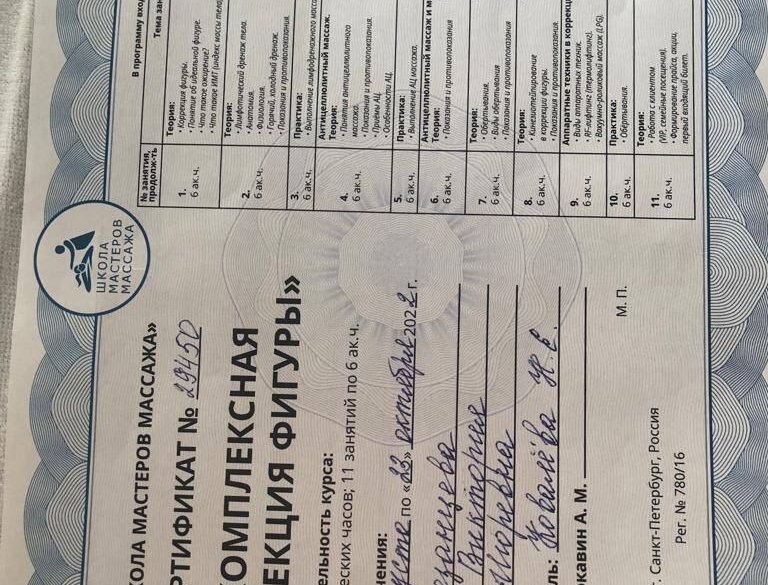 ШКОЛА
МАСТЕРОВ
МАССАЖА
КОЛА МАСТЕРОВ МАССАЖА»
РТИФИКАТ № 29450
КОМПЛЕКСНАЯ
ЕКЦИЯ ФИГУРЫ»
тельность курса:
ческих часов; 11 занятий по 6 ак.ч.
нения:
по «23» октября 2022 г.
Виктория
ль: Ковалёва Н. В.
окавин А. М.
М. П.
. Санкт-Петербург, Россия
Рег. № 780/16
В программу вход
№ занятия,
продолж-ть
Тема зан
1.
6 ак.ч.
Теория:
• Коррекция фигуры.
• Понятие об идеальной фигуре.
• Что такое ожирение?
• Что такое ИМТ (индекс массы тела
2.
6 ак.ч.
Теория:
• Лимфатический дренаж тела.
• Анатомия.
• Физиология.
• Горячий, холодный дренаж.
• Показания и противопоказания.
3.
6 ак.ч.
Практика:
• Выполнение лимфодренажного масса
4.
6 ак.ч.
Антицеллюлитный массаж.
Теория:
• Понятия антицеллюлитного
массажа.
• Показания и противопоказания.
• Приёмы АЦ.
• Особенности АЦ.
5.
6 ак.ч.
Практика:
• Выполнение АЦ массажа.
6.
6 ак.ч.
Антицеллюлитный массаж и м
Теория:
• Показания и противопоказания
7.
6 ак.ч.
Теория:
• Обёртывания.
• Виды обёртывания
• Показания и противопоказания
8.
6 ак.ч.
Теория:
• Кинезиотейпирование
в коррекции фигуры.
• Показания и противопоказания
9.
6 ак.ч.
Аппаратные техники в коррекц
• Виды аппаратных техник.
• RF-лифтинг(термолифтинг).
• Вакуумно-роликовый массаж (LPG).
10.
6 ак.ч.
Практика:
• Обёртывания.
11.
6 ак.ч.
Теория:
• Работа с клиентом
(VIP, семейные посещения).
• Формирование прайса, акции,
первый входящий билет.